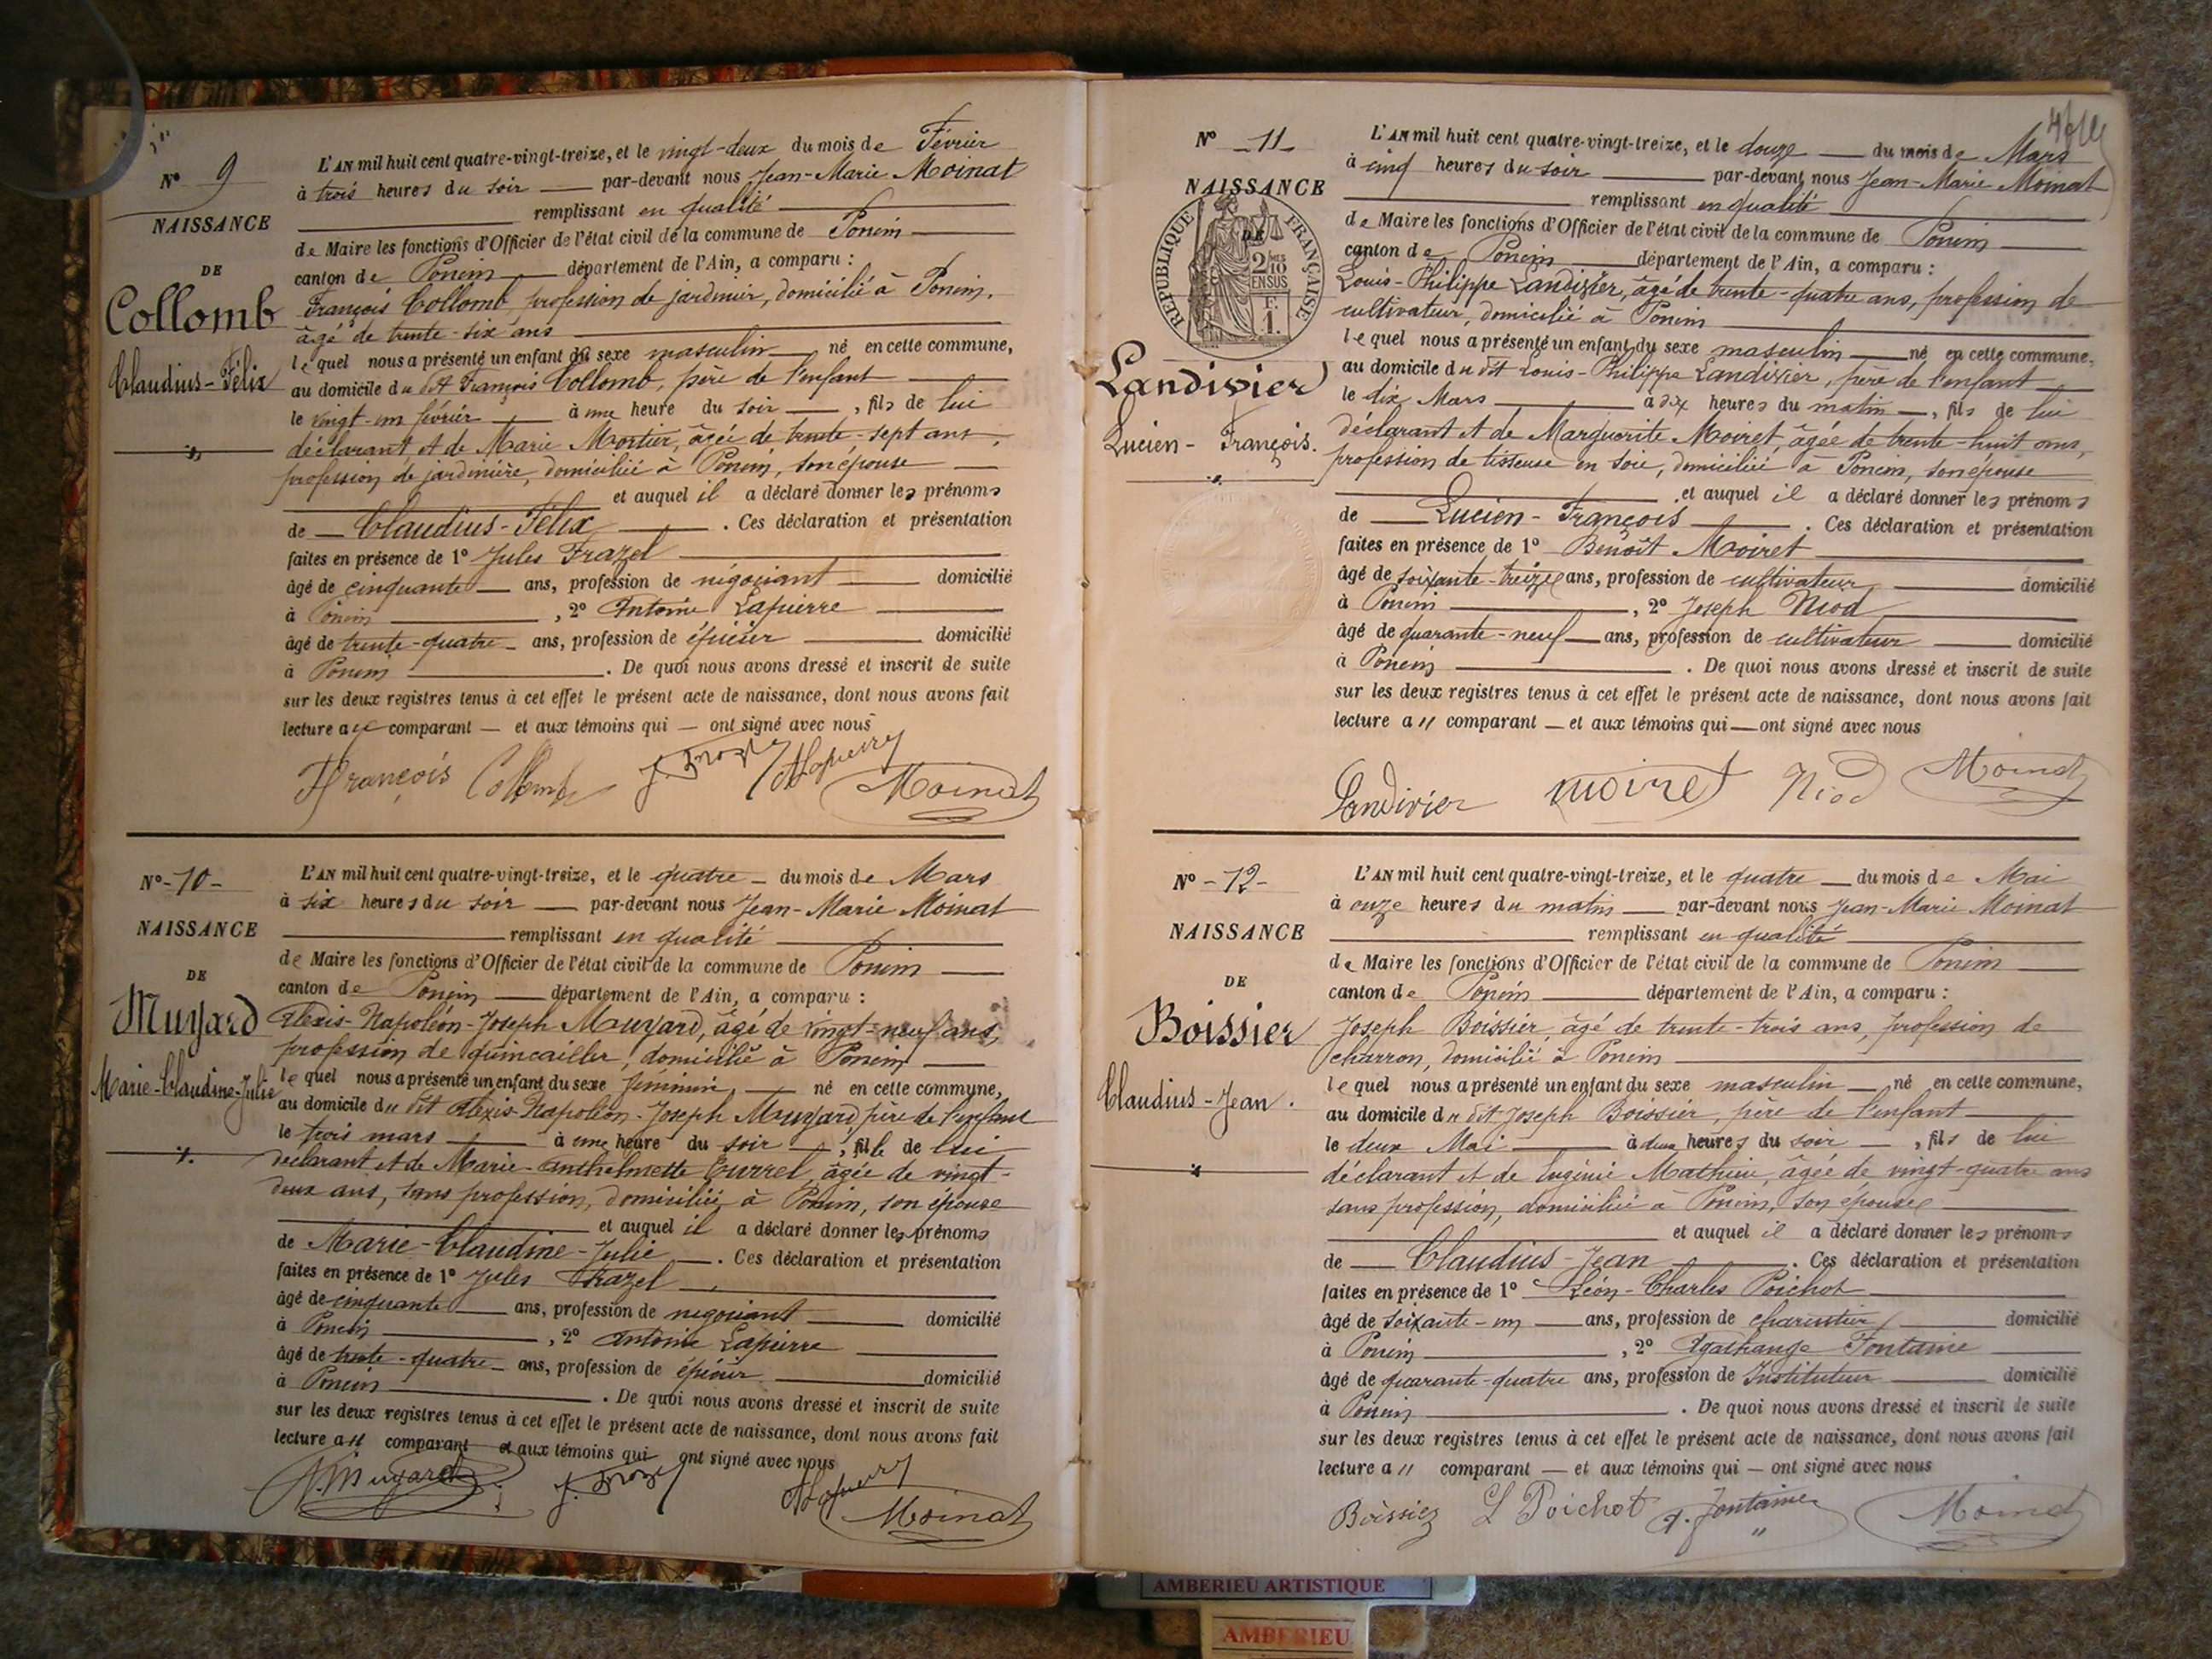 N° 9
NAISSANCE
DE
Collomb
Claudius-Félix
L'AN mil huit cent quatre-vingt-treize, et le vingt-deux du mois de Février
à trois heures du soir par-devant nous Jean-Marie Moinat
remplissant en qualité
de Maire les fonctions d'Officier de l'état civil de la commune de Poncin
canton de Poncin département de l'Ain, a comparu :
François Collomb, profession de jardinier, domicilié à Poncin,
âgé de trente-six ans
lequel nous a présenté un enfant du sexe masculin né en cette commune,
au domicile du dit François Collomb, père de l'enfant
le vingt-un février à une heure du soir, fils de lui
déclarant et de Marie Mortier, âgée de trente-sept ans,
profession de jardinière, domiciliée à Poncin, son épouse
et auquel il a déclaré donner les prénoms
de Claudius-Félix. Ces déclaration et présentation
faites en présence de 1° Jules Frazel
âgé de cinquante ans, profession de négociant domicilié
à Poncin, 2° Antoine Lapierre
âgé de trente-quatre ans, profession de épicier domicilié
à Poncin. De quoi nous avons dressé et inscrit de suite
sur les deux registres tenus à cet effet le présent acte de naissance, dont nous avons fait
lecture au comparant et aux témoins qui ont signé avec nous
François Collomb Moinat
N° 10
NAISSANCE
DE
Muyard
Marie-Claudine-Julie
L'AN mil huit cent quatre-vingt-treize, et le quatre du mois de Mars
à six heures du soir par-devant nous Jean-Marie Moinat
remplissant en qualité
de Maire les fonctions d'Officier de l'état civil de la commune de Poncin
canton de Poncin département de l'Ain, a comparu :
Alexis-Napoléon-Joseph Muyard, âgé de vingt-neuf ans,
profession de quincailler, domicilié à Poncin
lequel nous a présenté un enfant du sexe féminin, né en cette commune,
au domicile du dit Alexis-Napoléon-Joseph Muyard, père de l'enfant
le trois mars à une heure du soir, fille de lui
déclarant et de Marie-Anthelmette Curret, âgée de vingt-
deux ans, sans profession, domiciliée à Poncin, son épouse
et auquel il a déclaré donner les prénoms
de Marie-Claudine-Julie. Ces déclaration et présentation
faites en présence de 1° Jules Frazel
âgé de cinquante ans, profession de négociant domicilié
à Poncin, 2° Antoine Lapierre
âgé de trente-quatre ans, profession de épicier domicilié
à Poncin. De quoi nous avons dressé et inscrit de suite
sur les deux registres tenus à cet effet le présent acte de naissance, dont nous avons fait
lecture au comparant et aux témoins qui ont signé avec nous
Muyard Moinat
N° 11
NAISSANCE
DE
RÉPUBLIQUE FRANÇAISE
2/10
EN SUS
F.
1.
Landivier
Lucien-François.
L'AN mil huit cent quatre-vingt-treize, et le douze du mois de Mars
à cinq heures du soir par-devant nous Jean-Marie Moinat
remplissant en qualité
de Maire les fonctions d'Officier de l'état civil de la commune de Poncin
canton de Poncin département de l'Ain, a comparu :
Louis-Philippe Landivier, âgé de trente-quatre ans, profession de
cultivateur, domicilié à Poncin
lequel nous a présenté un enfant du sexe masculin né en cette commune,
au domicile du dit Louis-Philippe Landivier, père de l'enfant
le dix Mars à dix heures du matin, fils de lui
déclarant et de Marguerite Moiret, âgée de trente-huit ans,
profession de tisseuse en soie, domiciliée à Poncin, son épouse
et auquel il a déclaré donner les prénoms
de Lucien-François. Ces déclaration et présentation
faites en présence de 1° Benoît Moiret
âgé de soixante-treize ans, profession de cultivateur domicilié
à Poncin, 2° Joseph Niod
âgé de quarante-neuf ans, profession de cultivateur domicilié
à Poncin. De quoi nous avons dressé et inscrit de suite
sur les deux registres tenus à cet effet le présent acte de naissance, dont nous avons fait
lecture au comparant et aux témoins qui ont signé avec nous
Landivier moiret Niod Moinat
N° 12
NAISSANCE
DE
Boissier
Claudius-Jean.
L'AN mil huit cent quatre-vingt-treize, et le quatre du mois de Mai
à onze heures du matin par-devant nous Jean-Marie Moinat
remplissant en qualité
de Maire les fonctions d'Officier de l'état civil de la commune de Poncin
canton de Poncin département de l'Ain, a comparu :
Joseph Boissier, âgé de trente-trois ans, profession de
charron, domicilié à Poncin
lequel nous a présenté un enfant du sexe masculin né en cette commune,
au domicile du dit Joseph Boissier, père de l'enfant
le deux Mai à deux heures du soir, fils de lui
déclarant et de Eugénie Mathieu, âgée de vingt-quatre ans
sans profession, domiciliée à Poncin, son épouse
et auquel il a déclaré donner les prénoms
de Claudius-Jean. Ces déclaration et présentation
faites en présence de 1° Léon-Charles Poichot
âgé de soixante-un ans, profession de domicilié
à Poncin, 2° Agathange Fontaine
âgé de quarante-quatre ans, profession de Instituteur domicilié
à Poncin. De quoi nous avons dressé et inscrit de suite
sur les deux registres tenus à cet effet le présent acte de naissance, dont nous avons fait
lecture au comparant et aux témoins qui ont signé avec nous
Boissier L Poichot A. Fontaine Moinat
AMBERIEU ARTISTIQUE
AMBERIEU